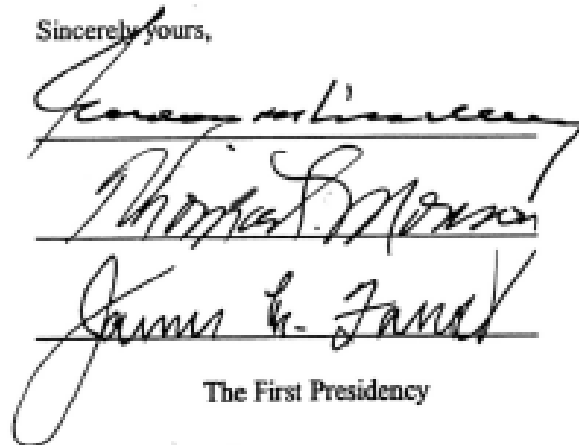 Sincerely yours,
Thomas S. Monson
James E. Faust
The First Presidency